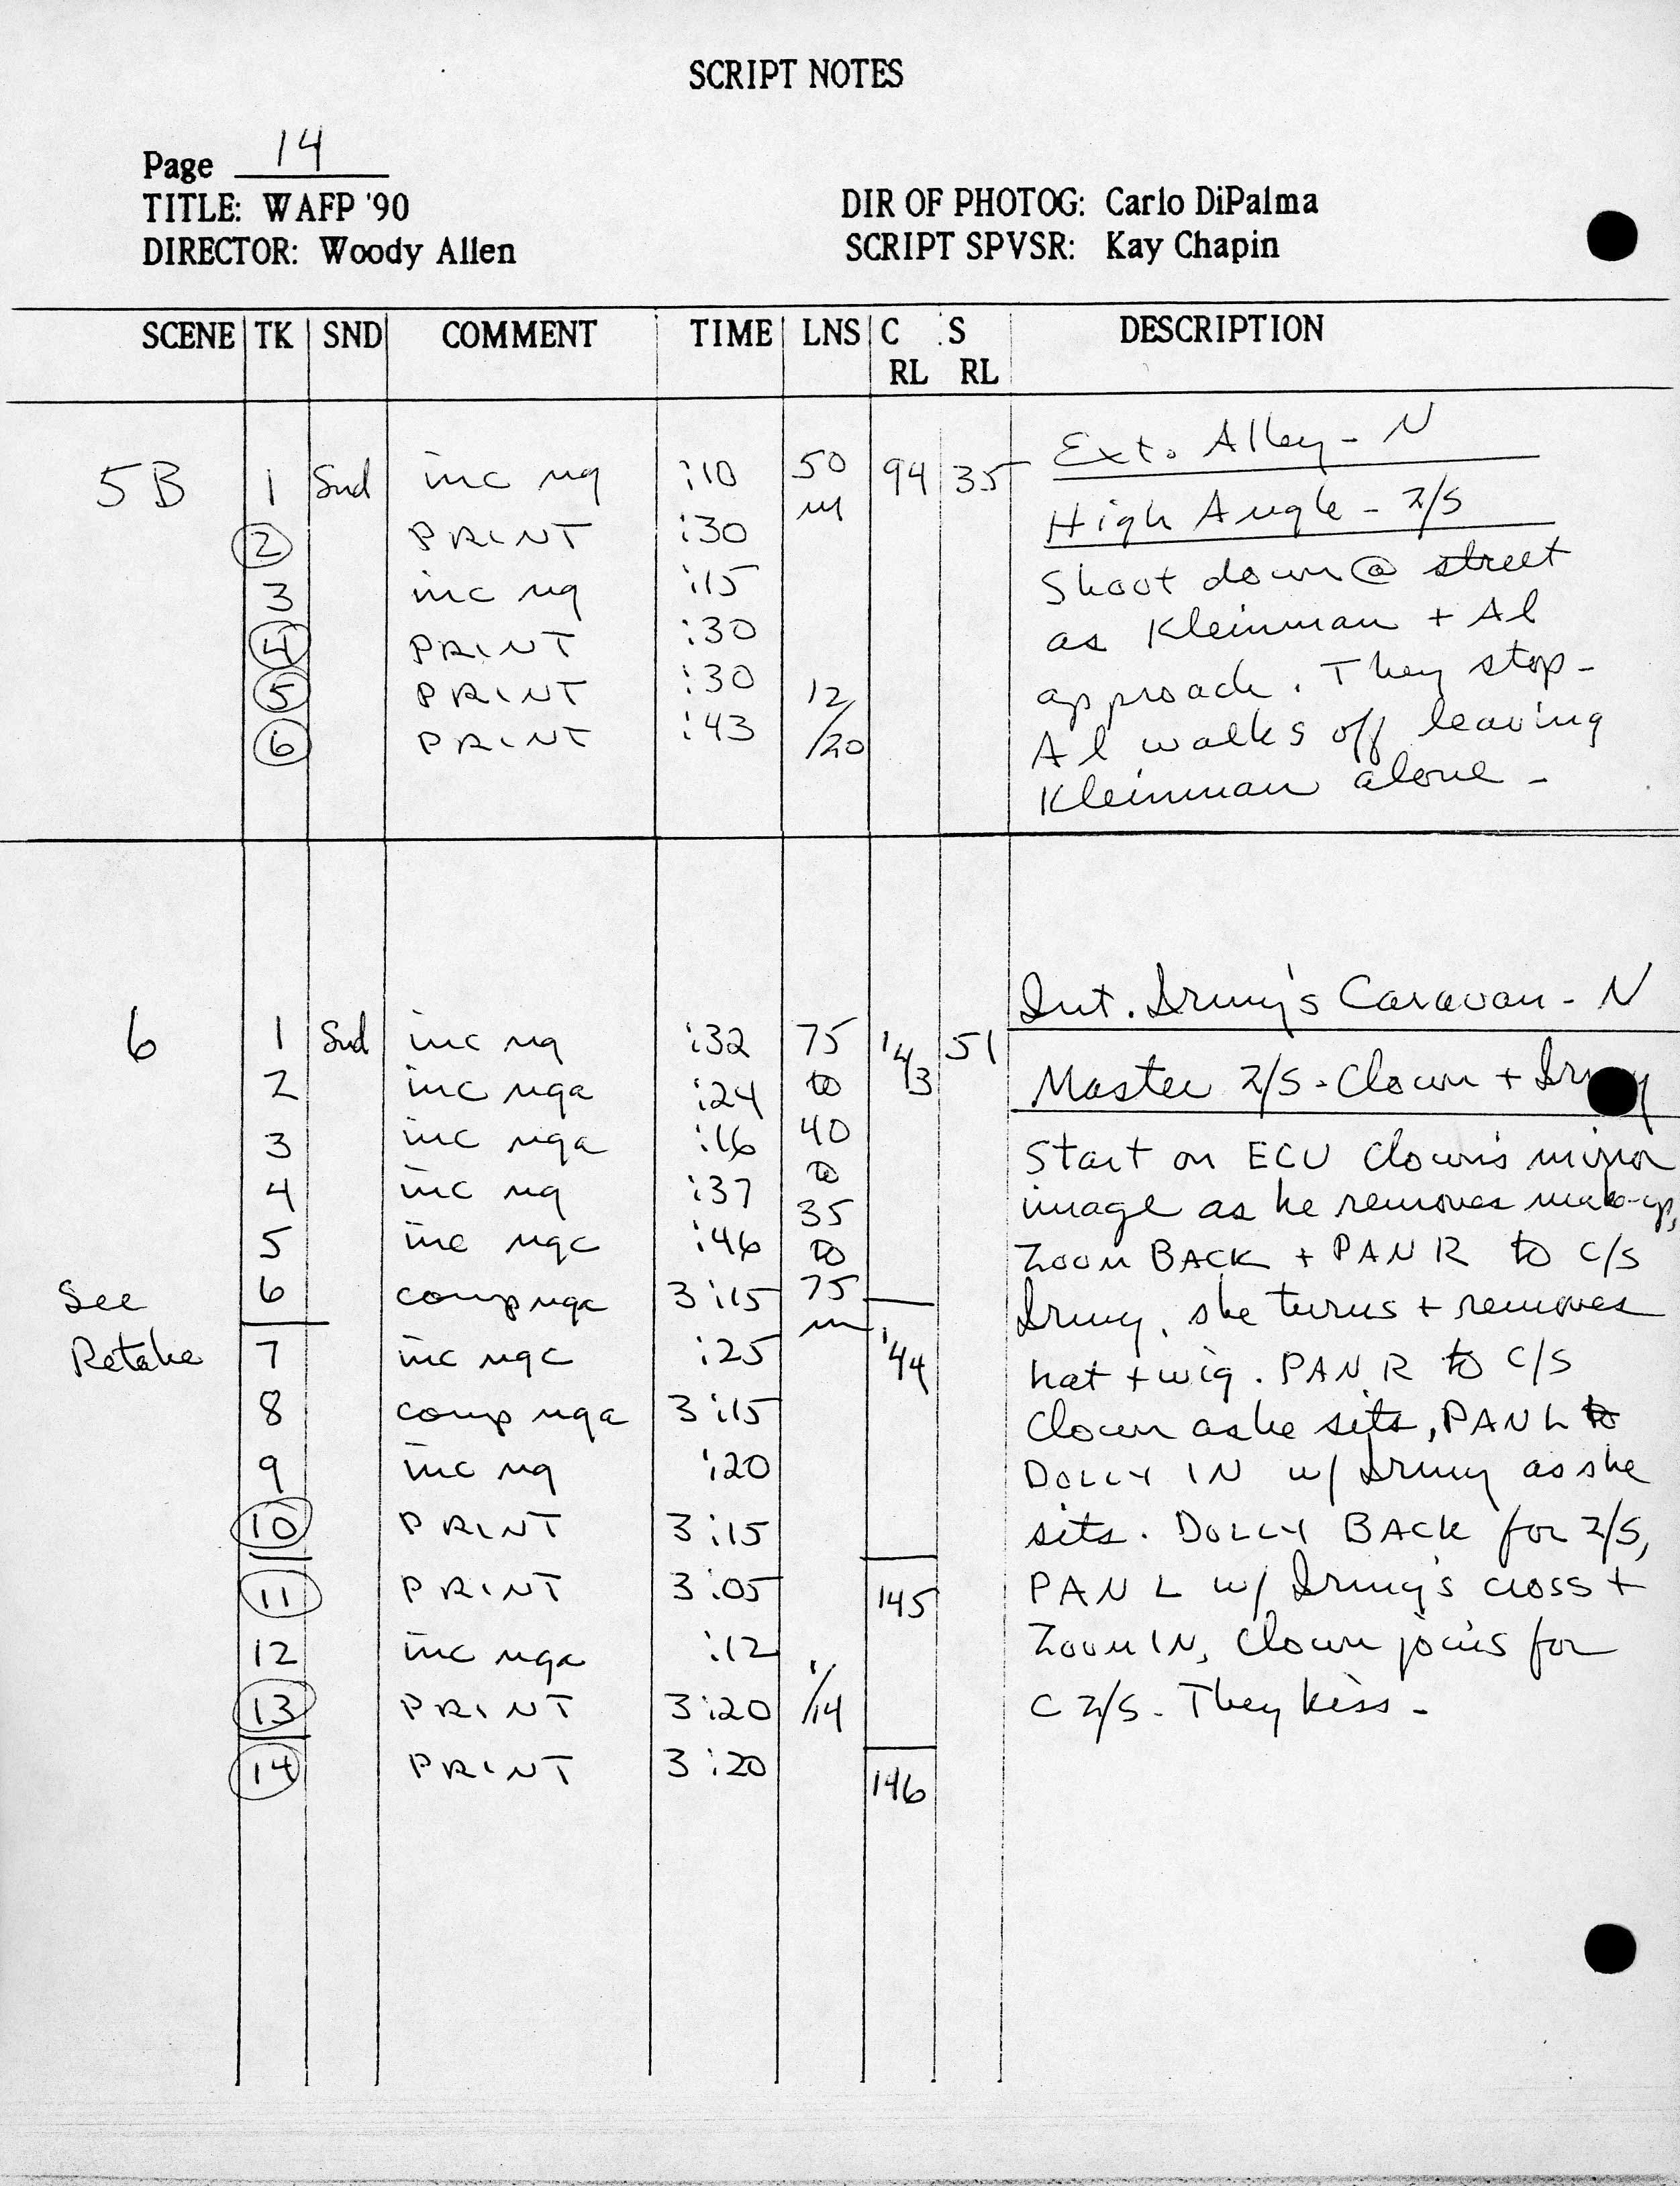 SCRIPT NOTES
Page 14
TITLE: WAFP '90
DIR OF PHOTOG: Carlo DiPalma
DIRECTOR: Woody Allen
SCRIPT SPVSR: Kay Chapin
SCENE TK SND COMMENT TIME LNS C RL S RL DESCRIPTION
Ext. Alley - N
5B 1 Snd inc ng :10 50 94 35
m
High Angle - 2/S
2 PRINT :30
Shoot down @ street
3 inc ng :15
as Kleinman + Al
4 PRINT :30
approach. They stop -
5 PRINT :30 12/20
Al walks off leaving
6 PRINT :43
Kleinman alone -
Int. Irmy's Caravan - N
6 1 Snd inc ng :32 75 143 51
Master 2/S - Clown + Irmy
2 inc nga :24 to
3 inc nga :16 40
Start on ECU Clown's mirror
to
4 inc ng :37 35
image as he removes make-up,
5 inc ngc :46 to
ZOOM BACK + PAN R to C/S
See 6 comp nga 3:15 75
m
Irmy, she turns + removes
Retake 7 inc ngc :25 144
hat + wig. PAN R to C/S
8 comp nga 3:15
Clown as he sits, PAN L to
9 inc ng :20
DOLLY IN w/ Irmy as she
10 PRINT 3:15
sits. DOLLY BACK for 2/S,
11 PRINT 3:05 145
PAN L w/ Irmy's cross +
12 inc nga :12
ZOOM IN, Clown joins for
13 PRINT 3:20 1/14
C 2/S - They kiss -
14 PRINT 3:20 146